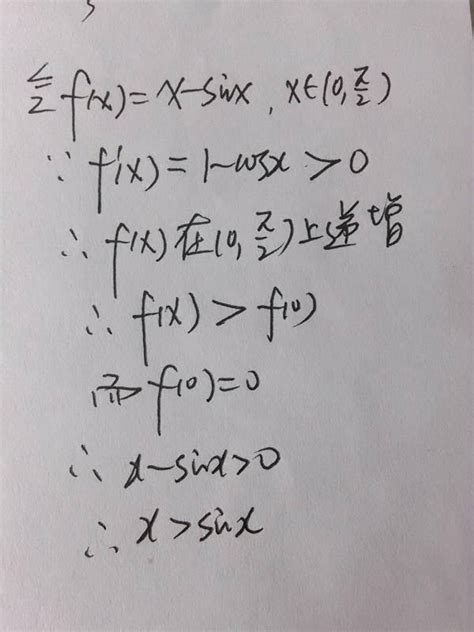 令f(x)=x-sinx,x∈(0,π/2)
∵f'(x)=1-cosx>0
∴f(x)在(0,π/2)上递增
∴f(x)>f(0)
而f(0)=0
∴x-sinx>0
∴x>sinx